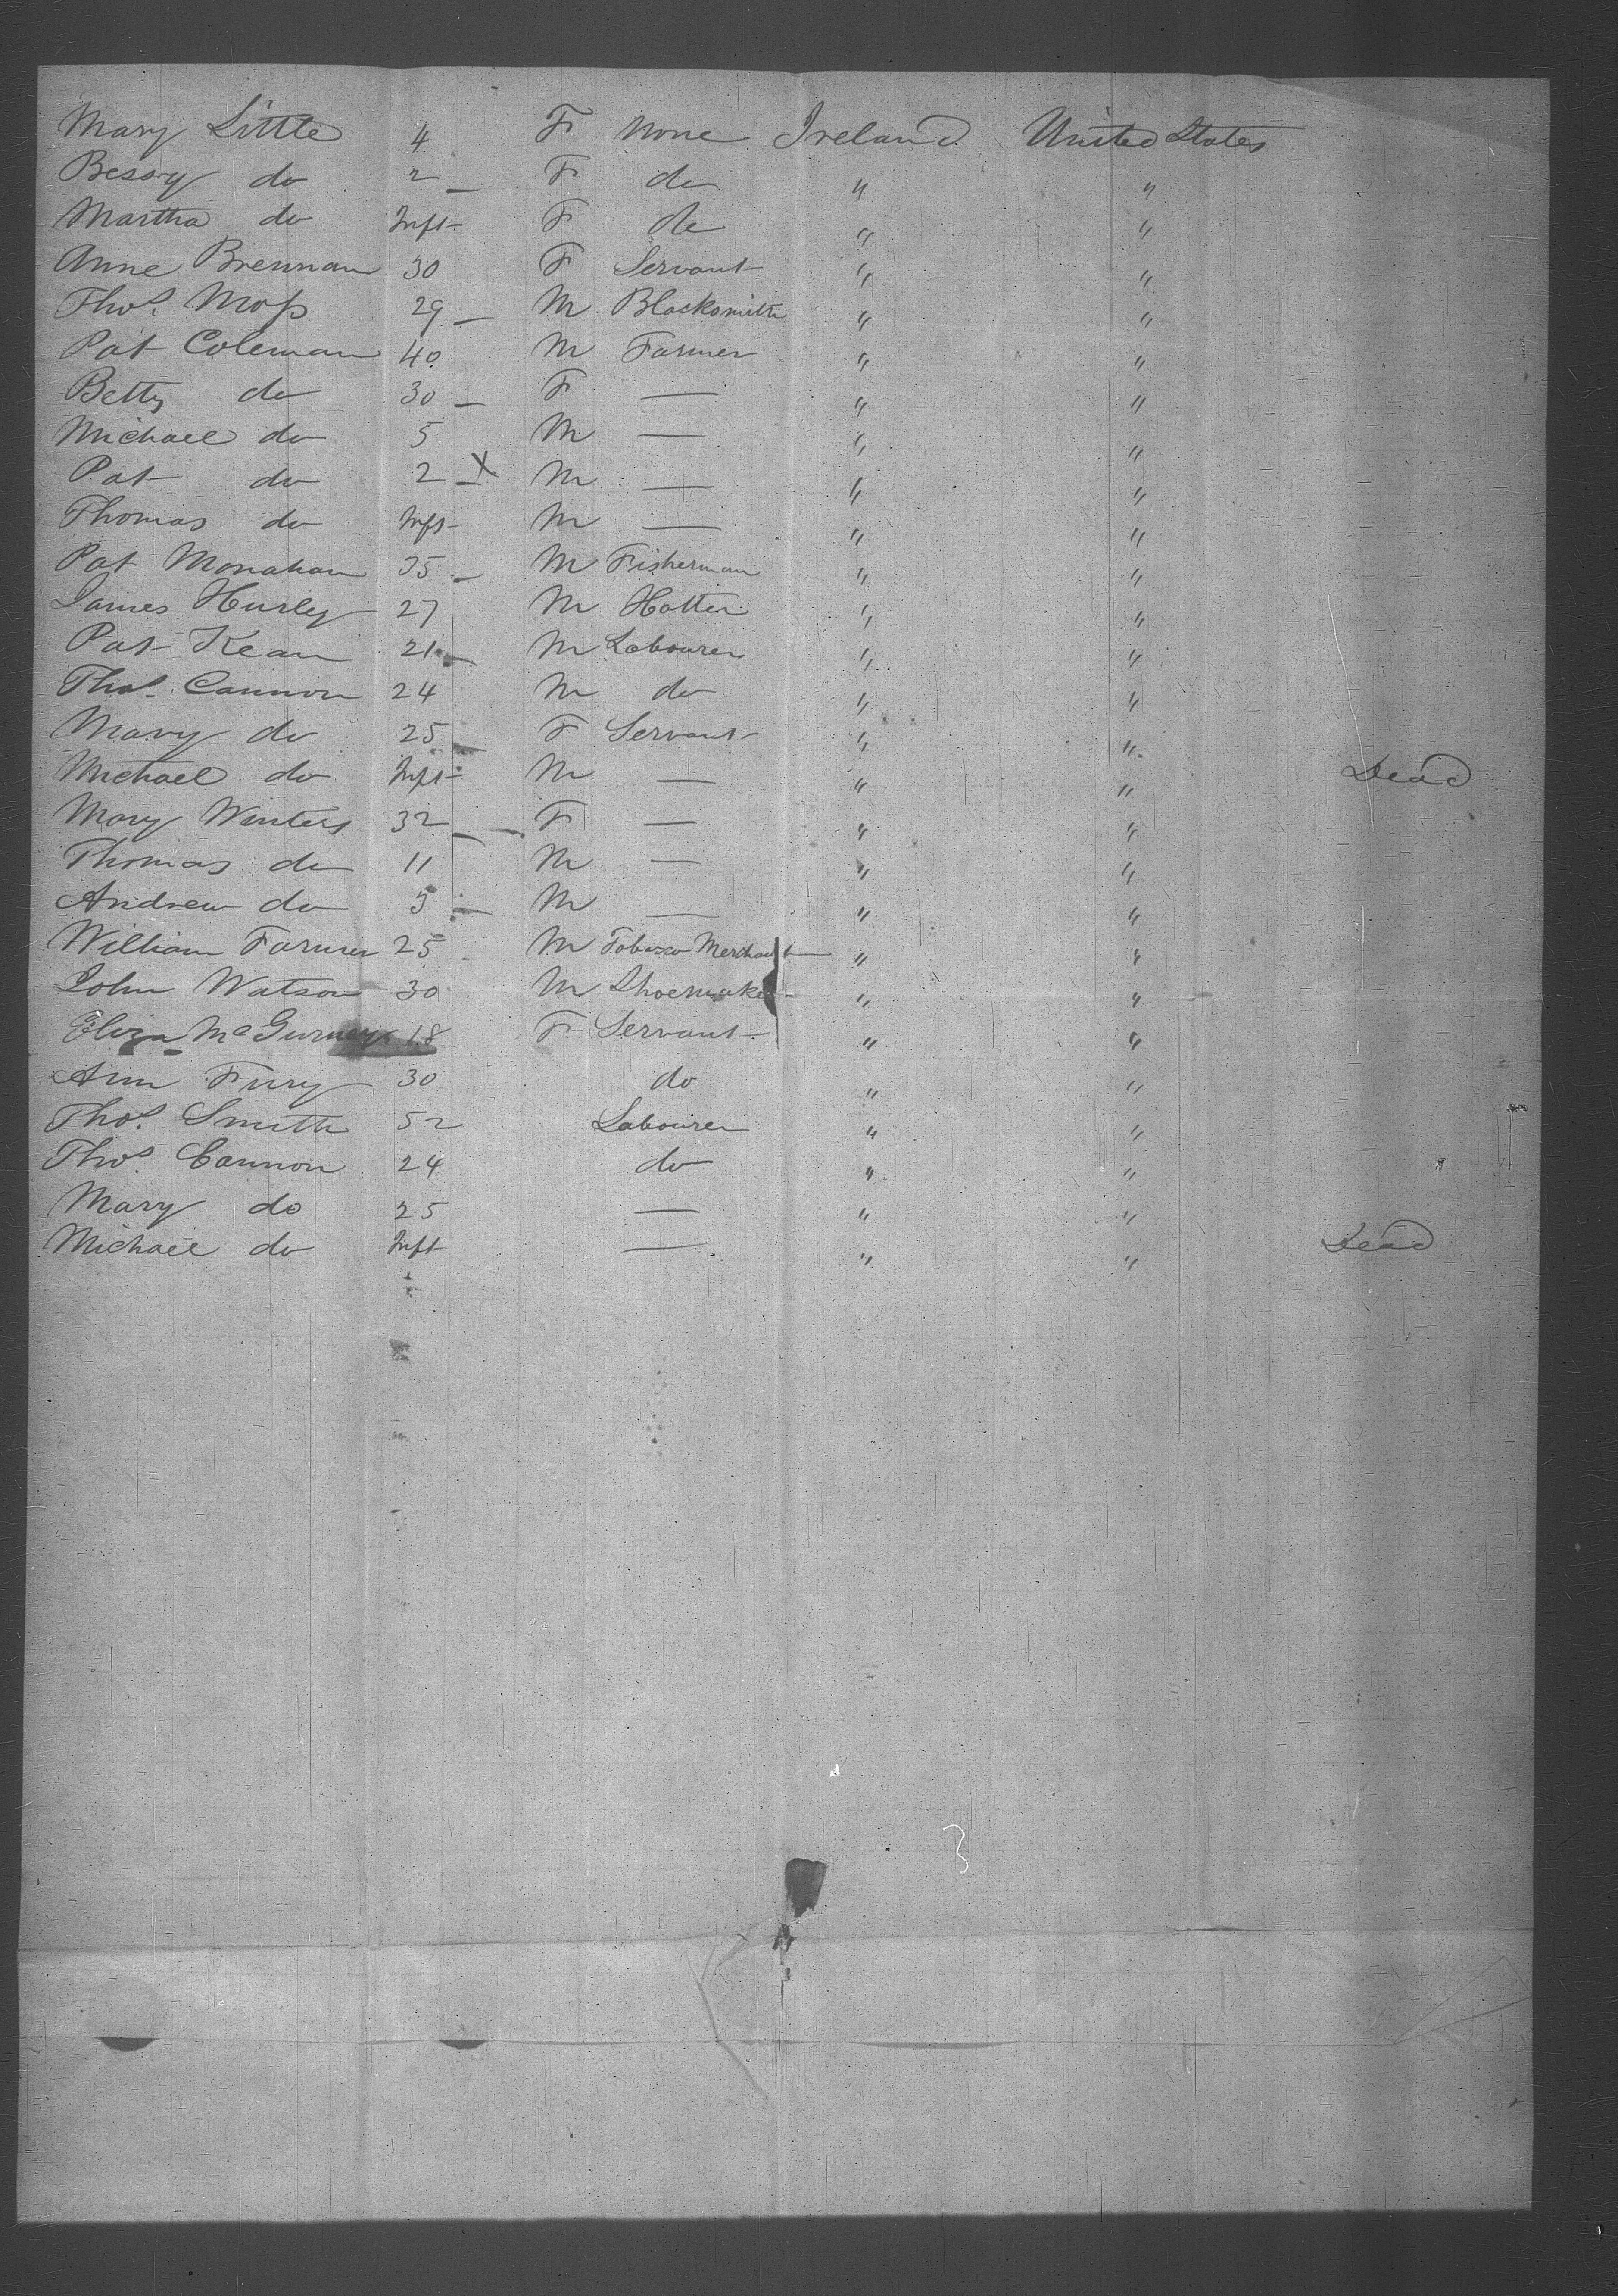 Mary Little 4 F None Ireland United States
Bessy do 2 F do " "
Martha do Inft F do " "
Anne Brennan 30 F Servant " "
Thos. Moss 29 M Blacksmith " "
Pat Coleman 40 M Farmer " "
Betty do 30 F — " "
Michael do 5 M — " "
Pat do 2 X M — " "
Thomas do Inft M — " "
Pat Monahan 35 M Fisherman " "
James Hurley 27 M Hatter " "
Pat Kean 21 M Labourer " "
Thos. Cannon 24 M do " "
Mary do 25 F Servant " "
Michael do Inft M — " " Dead
Mary Winters 32 F — " "
Thomas do 11 M — " "
Andrew do 5 M — " "
William Farmer 25 M Tobacco Merchant " "
John Watson 30 M Shoemaker " "
Eliza McGurney 18 F Servant " "
Ann Fury 30 do " "
Thos. Smith 52 Labourer " "
Thos. Cannon 24 do " "
Mary do 25 — " "
Michael do Inft — " " Dead
3